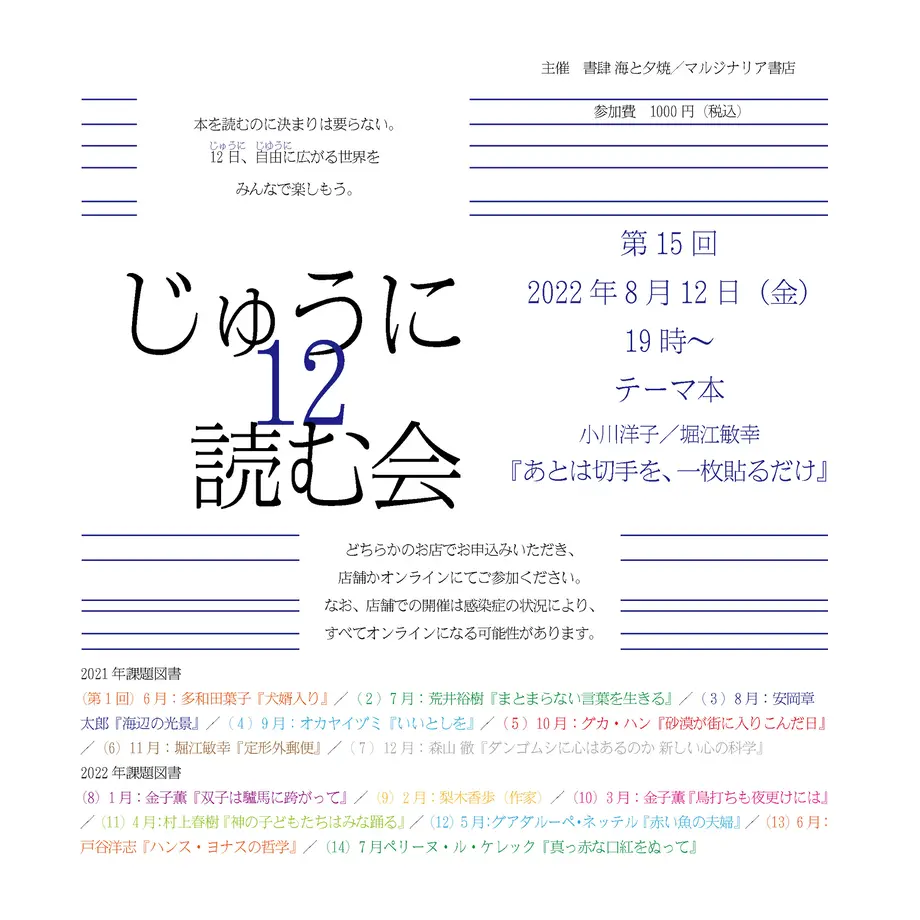 主催　書肆 海と夕焼／マルジナリア書店
参加費　1000円（税込）
本を読むのに決まりは要らない。
じゅうに　じゆうに
12日、自由に広がる世界を
みんなで楽しもう。
じゅうに
12
読む会
第15回
2022年8月12日（金）
19時〜
テーマ本
小川洋子／堀江敏幸
『あとは切手を、一枚貼るだけ』
どちらかのお店でお申込みいただき、
店舗かオンラインにてご参加ください。
なお、店舗での開催は感染症の状況により、
すべてオンラインになる可能性があります。
2021年課題図書
（第1回）6月：多和田葉子『犬婿入り』／（2）7月：荒井裕樹『まとまらない言葉を生きる』／（3）8月：安岡章
太郎『海辺の光景』／（4）9月：オカヤイヅミ『いいとしを』／（5）10月：グカ・ハン『砂漠が街に入りこんだ日』
／（6）11月：堀江敏幸『定形外郵便』／（7）12月：森山 徹『ダンゴムシに心はあるのか 新しい心の科学』
2022年課題図書
（8）1月：金子薫『双子は驢馬に跨がって』／（9）2月：梨木香歩（作家）／（10）3月：金子薫『鳥打ちも夜更けには』
／（11）4月：村上春樹『神の子どもたちはみな踊る』／（12）5月：グアダルーペ・ネッテル『赤い魚の夫婦』／（13）6月：
戸谷洋志『ハンス・ヨナスの哲学』／（14）7月ペリーヌ・ル・ケレック『真っ赤な口紅をぬって』